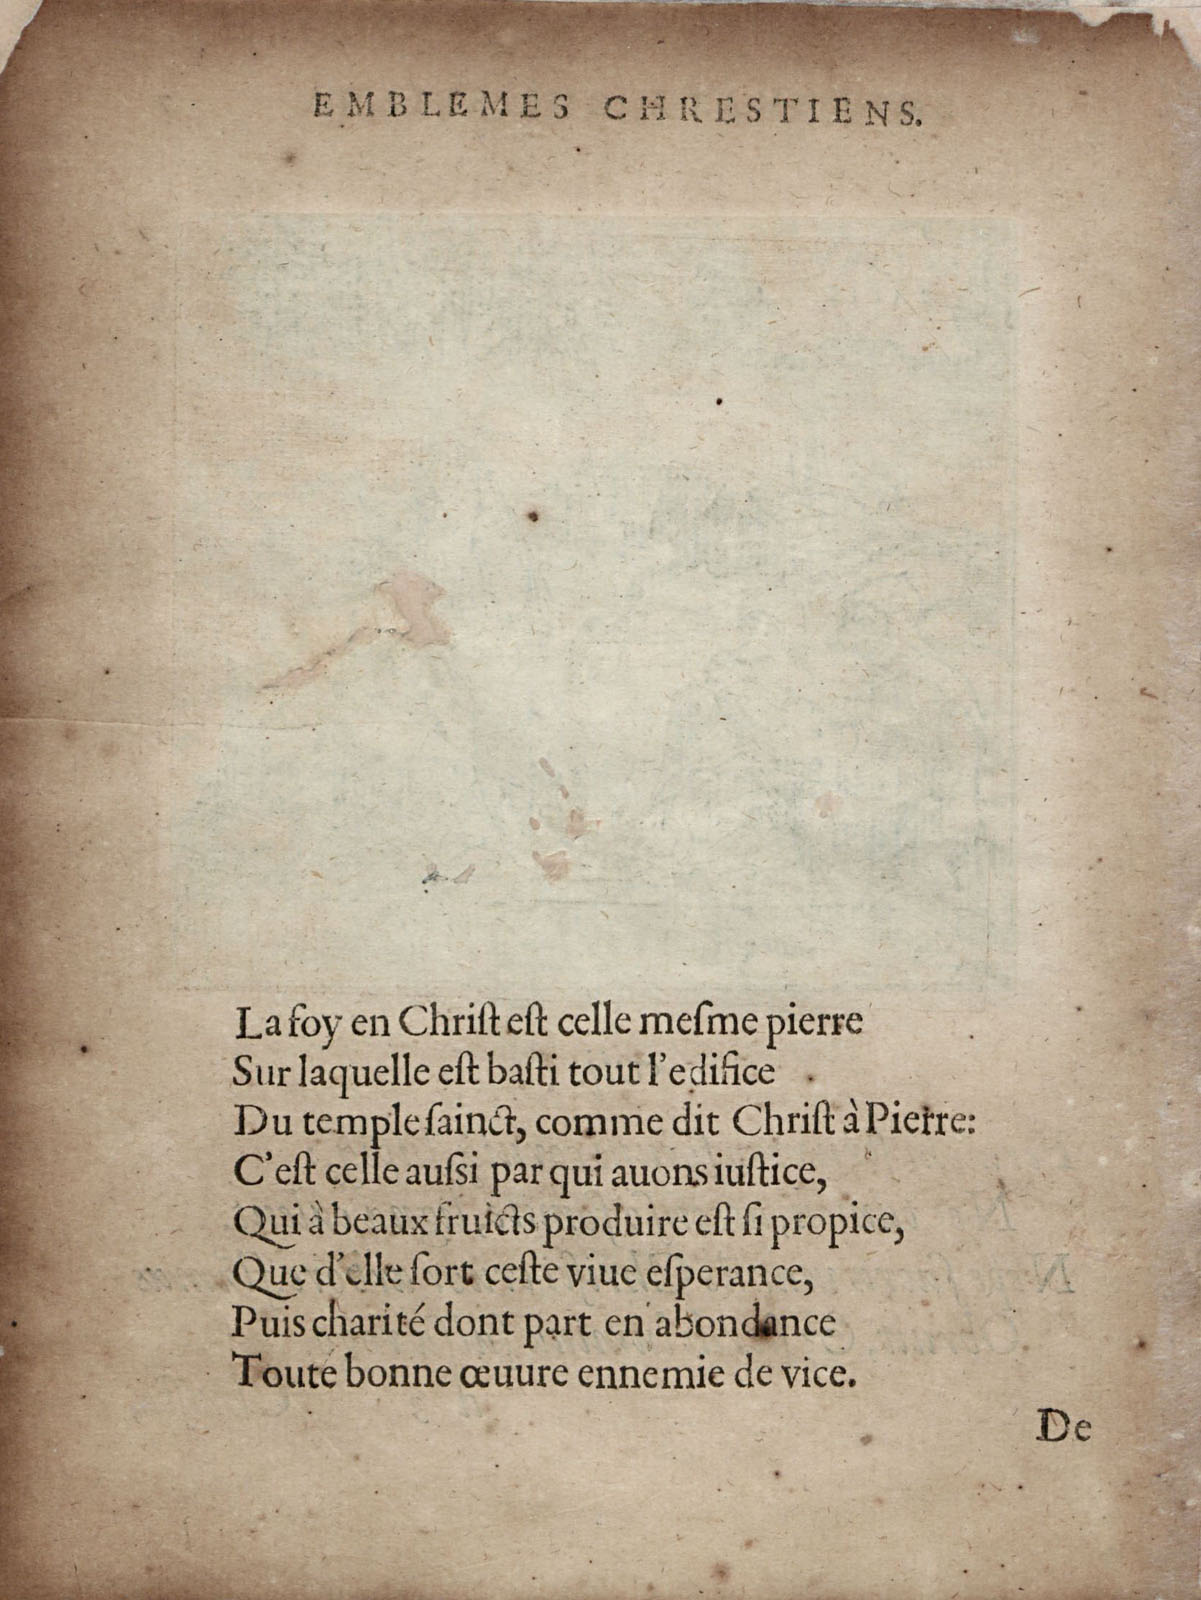 EMBLEMES CHRESTIENS.
La foy en Chriſt eſt celle meſme pierre
Sur laquelle eſt baſti tout l'edifice
Du temple ſainct, comme dit Chriſt à Pierre:
C'eſt celle auſsi par qui auons iuſtice,
Qui à beaux fruicts produire eſt ſi propice,
Que d'elle ſort ceſte viue eſperance,
Puis charité dont part en abondance
Toute bonne œuure ennemie de vice.
De